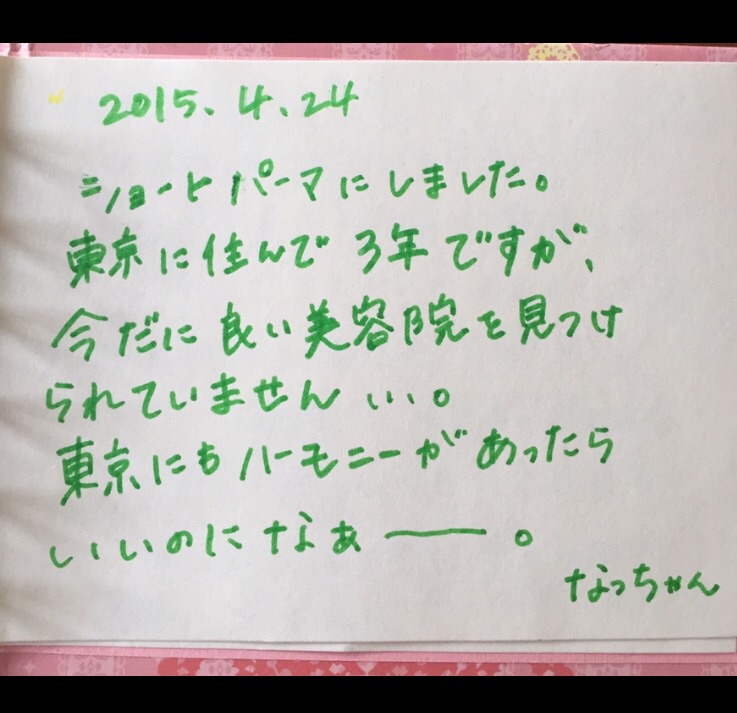 2015.4.24
ショートパーマにしました。
東京に住んで3年ですが、
今だに良い美容院を見つけ
られていません…。
東京にもハーモニーがあったら
いいのになぁー。
なっちゃん